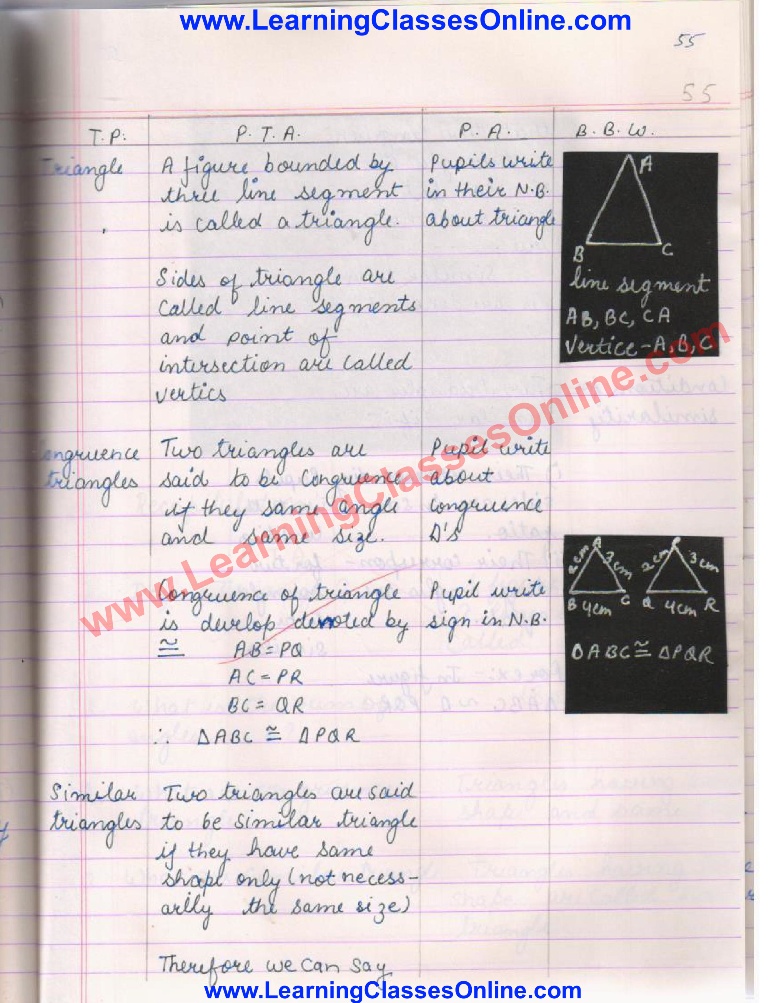 www.LearningClassesOnline.com
55
55
T.P. P.T.A. P.A. B.B.W.
Triangle
A figure bounded by
three line segment
is called a triangle.
Sides of triangle are
called line segments
and point of
intersection are called
vertics
Pupils write
in their N.B.
about triangle
A
B C
line segment
AB, BC, CA
Vertice - A, B, C
www.LearningClassesOnline.com
ongruence
triangles
Two triangles are
said to be congruence
if they same angle
and same size.
Congruence of triangle
is develop denoted by
≅ AB = PQ
AC = PR
BC = QR
∴ ΔABC ≅ ΔPQR
Pupil write
about
congruence
Δ's
Pupil write
sign in N.B.
A
2cm 3cm 2cm 3cm
B 4cm C Q 4cm R
ΔABC ≅ ΔPQR
Similar
triangles
Two triangles are said
to be similar triangle
if they have same
shape only (not necess-
arlly the same size)
Therefore we can say
www.LearningClassesOnline.com